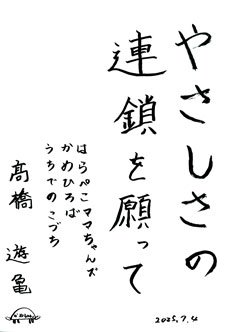 やさしさの
連鎖を願って
はらぺこママちゃんズ
かめひろば
うちでのこづち
髙橋 遊亀
2025.7.4